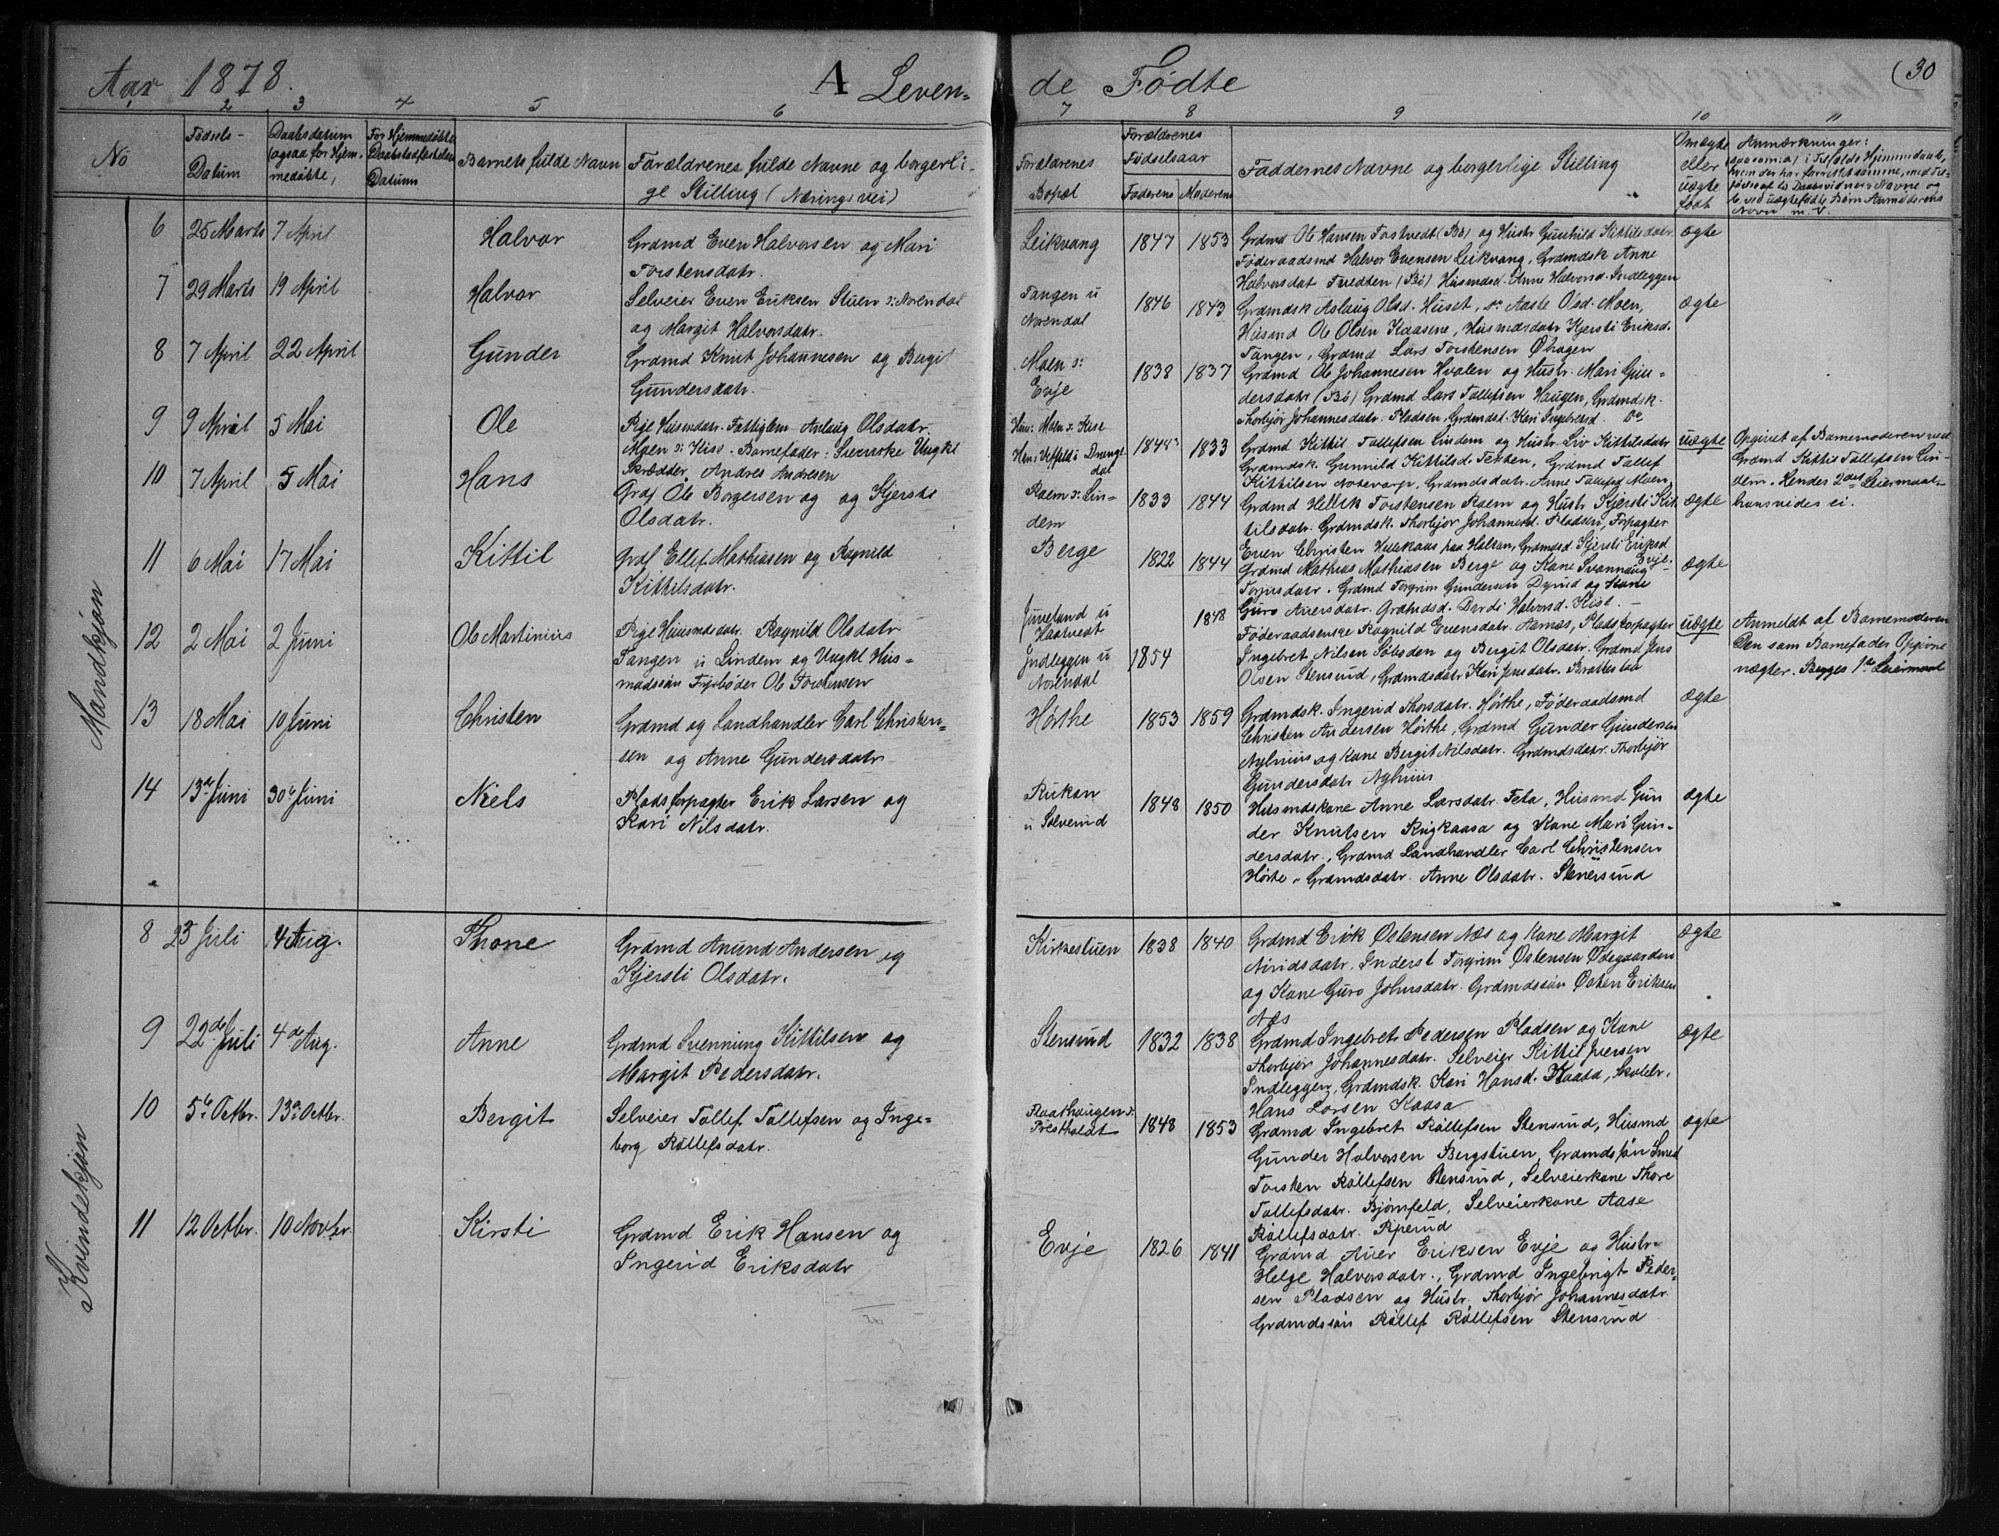 Aar 1878. A Leven-
de Fødte
30
2 3 4 5 6
7 8 9 10 11
No
Fødsels-
Datum
Daabsdatum
(ogsaa for Hjem-
medøbte,
For Hjemmedøbte
Datum
Barnets fulde Navn
Forældrenes fulde Navne og borgerli-
ge Stilling (Næringsvei)
Forældrenes
Bopæl
Forældrenes
Fødselsaar
Faderens Moderens
Faddernes Navne og borgerlige Stilling
Om ægte
eller
uægte
født
Anmærkninger:
Mandkjøn
6 25 Marts 7 April Halvor
Grdmd Even Halvorsen og Mari
Torstensdatr.
Leikvang 1847 1853
Grdmd Ole Hansen Tostvedt (Bø) og Hustr Gunhild Kittilsdatr.
Føderaadsmd Halvor Evensen Leikvang, Grdmdsk Anne
Halvorsdat (Bø) Husmdsd. Anne Halvorsd. Indleggen
ægte
7 29 Marts 19 April Halvor
Selveier Even Eriksen Stuen s: Norendal
og Margit Halvorsdatr.
Tangen u
Norendal
1846 1843
Grdmdsk Aslaug Olsd. Huset, do Aaste Olsd. Moen,
Husmd Ole Olsen Kaasene, Husmdsdatr Kjersti Eriksd.
Tangen, Grdmd Lars Torstensen Øhagen
ægte
8 7 April 22 April Gunder
Grdmd Knut Johannesen og Bergit
Gundersdatr.
Moen s:
Evje
1838 1837
Grdmd Ole Johannesen Hvalen og Hustr. Mari Gun-
dersdatr (Bø) Grdmd Lars Tollefsen Haugen, Grdmdsk.
Thorbjør Johannesdatr. Pladsen, Grdmdsd. Kari Ingebretsd. Do
9 9 April 5 Mai Ole
Pige Husmdatr. Fattiglem Aslaug Olsdatr.
Moen s: Kise. Barnefader: Ungkl
Skrædder, Andres Andresen
Hun: Moen s: Kise
Han: Drangedal
1848 1833
Grdmd Kittil Tollefsen Lindem og Hustr. Liv Kittilsdatr
Grdmdsk. Gunnild Kittilsd. Tekten, Grdmd Tollef
Kittilsen Notevarp, Grdmdsdatr. Anne Tollefsd Moen,
uægte
Opgivet af Barnemoderen ved
Grdmd Kittil Tollefsen Lin-
dem. Hendes 2det Leiermaal.
hans vides ei.
10 7 April 5 Mai Hans
Grdf Ole Borgersen og og Kjersti
Olsdatr.
Roem s: Lin-
dem
1833 1844
Grdmd Hellek Torstensen Roem og Hustr Kjersti Kit-
tilsdatr. Grdmdsk. Thorbjør Johannesd. Pladsen, Forpagter
Even Christen Hellekaas paa Holtan, Grdmdsd Kjersti Eriksd
Evje.
ægte
11 6 Mai 17 Mai Kittil
Grdf Ellef Mathiasen og Ragnild
Kittilsdatr.
Berge 1822 1844
Grdmd Mathias Mathiasen Berge og Kone Svannaug
Torjusdatr. Grdmd Torgrim Gundersen Dyrud og Kone
Guro Auersdatr. Grdmdsd. Dordi Halvorsd. Kise.
ægte
12 2 Mai 2 Juni Ole Martinius
Pige Husmdsdatr. Ragnild Olsdatr
Tangen u Lindem og Ungkl Hus-
mandssøn Ole Torstensen
Juveland u
Haatvedt
Indleggen u
Norendal
1848
1854
Føderaadsenke Ragnild Evensdatr. Aarnæs, Pladsforpagter
Ingebret Nilsen Søbsden og Bergit Olsdatr. Grdmd Jens
Olsen Stensrud, Grdmdsdatr Kari Jensdatr. Brattestaa
uægte
Anmeldt af Barnemoderen
Den som Barnefader Opgivne
nægter. Begges 1ste Leiermaal
13 18 Mai 10 Juni Christen
Grdmd og Landhandler Carl Christen-
sen og Anne Gundersdatr
Hørthe 1853 1859
Grdmdsk. Ingerid Thorsdatr. Hørthe, Føderaadsmd
Christen Andersen Hørthe, Grdmd Gunder Gundersen
Nyhuus og Kone Bergit Nilsdatr. Grdmdsdatr. Thorbjør
Gundersdatr Nyhuus
ægte
14 13de Juni 30te Juni Niels
Pladsforpagter Erik Larsen og
Kari Nilsdatr.
Rukan
u Solverud
1848 1850
Husmdskone Anne Larsdatr. Teta, Husmd Gun
der Knutsen Rugkaasa og Kone Mari Gun-
dersdatr., Grdmd Landhandler Carl Christensen
Hørte, Grdmdsdatr. Anne Olsdatr. Stensrud
ægte
Kvindekjøn
8 23 Juli 4 Aug. Thone
Grdmd Anund Andersen og
Kjersti Olsdatr.
Kirkestuen 1838 1840
Grdmd Erik Østensen Næs og Kone Margit
Niridsdatr. Inderst Torgrim Østensen Ødegaarden
og Kone Guro Johnsdatr. Grdmdssøn Østen Eriksen
Næs
ægte
9 22de Juli 4de Aug. Anne
Grdmd Svennung Kittilsen og
Margit Pedersdatr.
Stensrud 1832 1838
Grdmd Ingebret Pedersen Pladsen og Kone
Thorbjør Johannesdatr. Selveier Kittil Iversen
Indleggen, Grdmdsk. Kari Hansd. Kaasa, Skolelr.
Hans Larsen Kaasa
ægte
10 5te Octbr. 13de Octbr. Bergit
Selveier Tollef Tollefsen og Inge-
borg Røllefsdatr.
Raathaugen s:
Prestholdt
1848 1853
Grdmd Ingebret Røllefsen Stensrud, Husmd
Gunder Halvorsen Bergstuen, Grdmdssøn Smed
Torsten Røllefsen Stensrud, Selveierkone Thore
Tollefsdatr. Bjørnfeld, Selveierkone Aase
Røllefsdatr. Riperud
ægte
11 12 Octbr. 10 Novbr Kirsti
Grdmd Erik Hansen og
Ingerid Eriksdatr
Evje 1826 1841
Grdmd Auer Eriksen Evje og Hustr-
Helge Halvorsdatr., Grdmd Ingebrigt Peder-
sen Pladsen og Hustr. Thorbjør Johannesdatr.
Grdmdssøn Røllef Røllefsen Stensrud